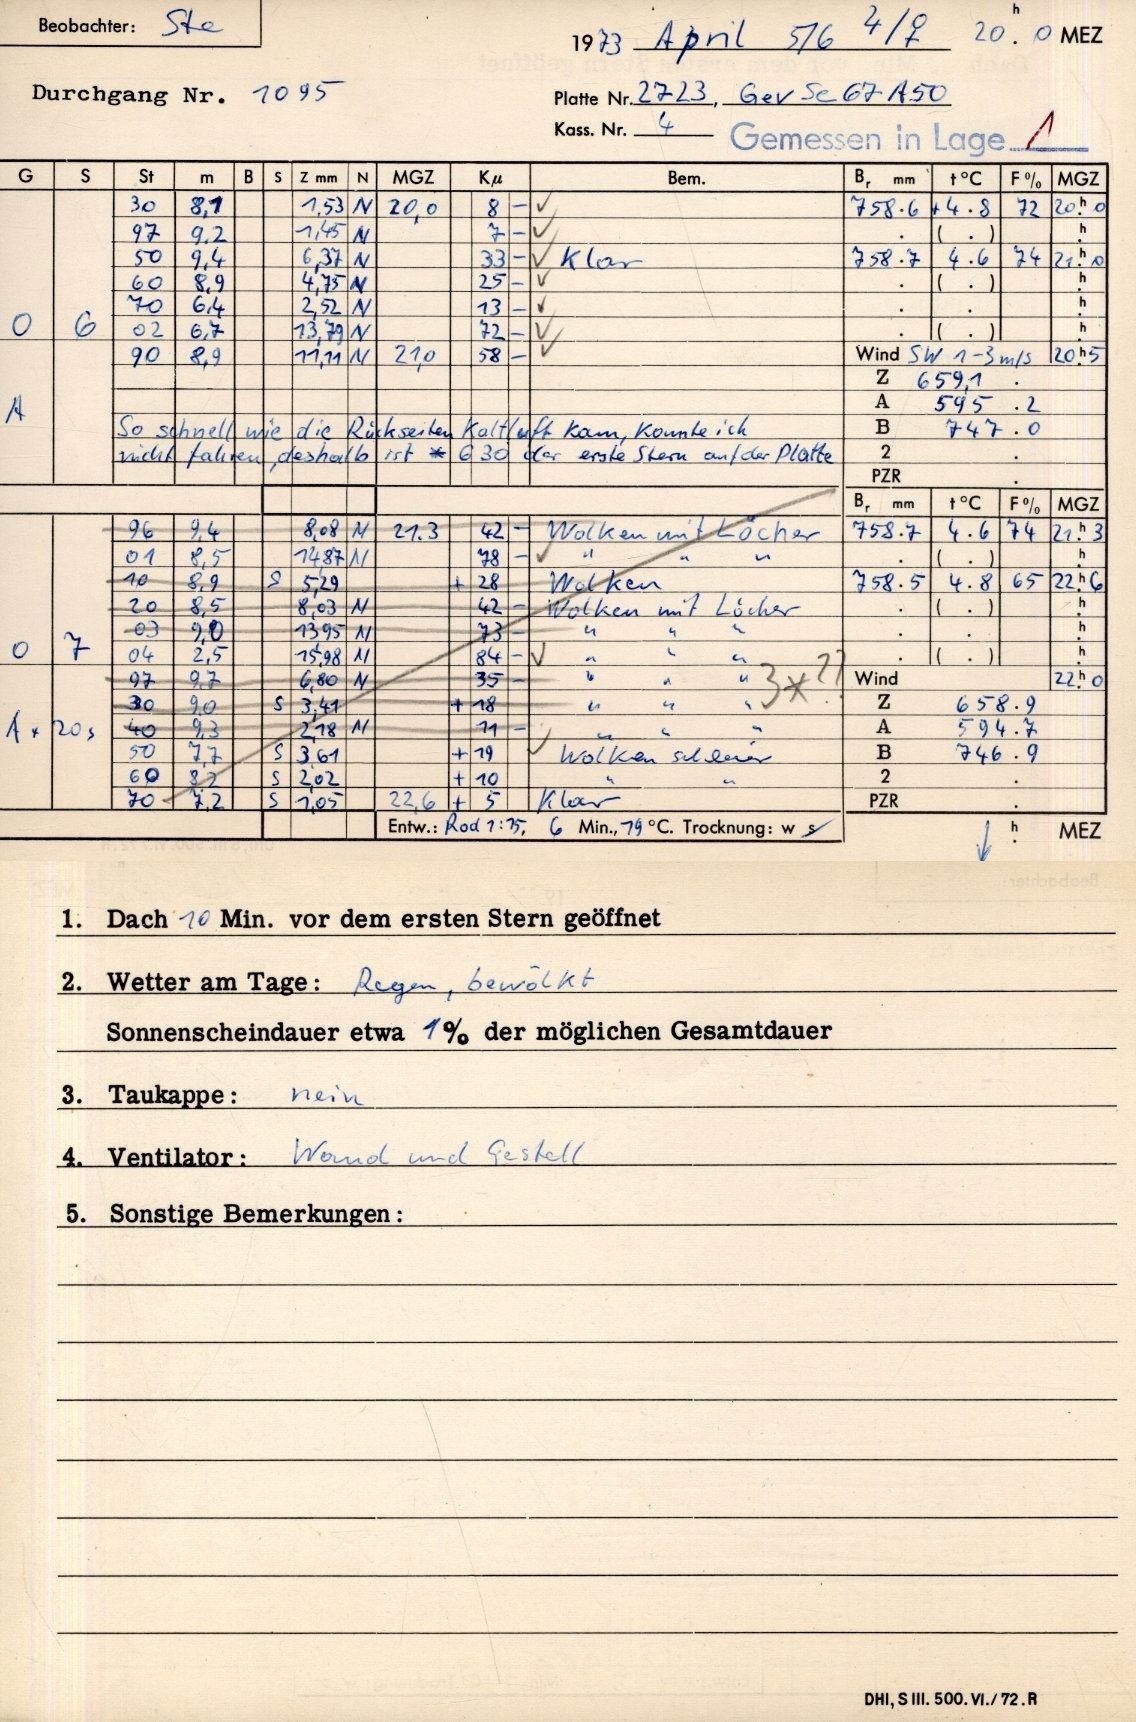 Beobachter: Ste
1973 April 5/6 4/♀ 20.ʰ0 MEZ
Durchgang Nr. 1095
Platte Nr. 2723, Gev Sc 67 A50
Kass. Nr. 4
Gemessen in Lage 1
G S St m B S Z mm N MGZ Kμ Bem. Bᵣ mm t °C F% MGZ
30 8,1 1,53 N 20,0 8 – ✓ 758.6 +4.8 72 20ʰ.0
97 9,2 1,45 N 7 – ✓ . ( . ) ʰ.
50 9,4 6,37 N 33 – ✓ Klar 758.7 4.6 74 21ʰ.0
60 8,9 4,75 N 25 – ✓ . ( . ) ʰ.
70 6,4 2,52 N 13 – ✓ . . ʰ.
0 6 02 6,7 13,79 N 72 – ✓ . ( . ) ʰ.
90 8,9 11,11 N 21,0 58 – ✓ Wind SW 1-3 m/s 20ʰ.5
Z 659,1 .
A A 595 .2
So schnell wie die Rückseiten Kaltluft kam, konnte ich B 747 .0
nicht fahren, deshalb ist * 6 30 der erste Stern auf der Platte 2 .
PZR .
Bᵣ mm t °C F% MGZ
96 9,4 8,08 N 21.3 42 – Wolken mit Löcher 758.7 4.6 74 21ʰ.3
01 8,5 14,87 N 78 – ✓ " " " . ( . ) ʰ.
10 8,9 S 5,29 + 28 Wolken 758.5 4.8 65 22ʰ.6
20 8,5 8,03 N 42 – Wolken mit Löcher . ( . ) ʰ.
03 9,0 13,95 N 73 – " " " . . ʰ.
0 7 04 2,5 15,98 N 84 – ✓ " " " . ( . ) ʰ.
97 9,7 6,80 N 35 – " " " 3*?? Wind 22ʰ.0
30 9,0 S 3,41 + 18 " " " Z 658.9
A * 20s 40 9,3 2,18 N 11 – " " " A 594.7
50 7,7 S 3,61 + 19 ✓ Wolken schleier B 746.9
60 8,2 S 2,02 + 10 " " 2 .
70 7,2 S 1,05 22,6 + 5 Klar PZR .
Entw.: Rod 1:75, 6 Min., 19 °C. Trocknung: w s ↓ ʰ. MEZ
1. Dach 10 Min. vor dem ersten Stern geöffnet
2. Wetter am Tage: Regen, bewölkt
Sonnenscheindauer etwa 1 % der möglichen Gesamtdauer
3. Taukappe: nein
4. Ventilator: Wand und Gestell
5. Sonstige Bemerkungen:
DHI, S III. 500. VI./72. R